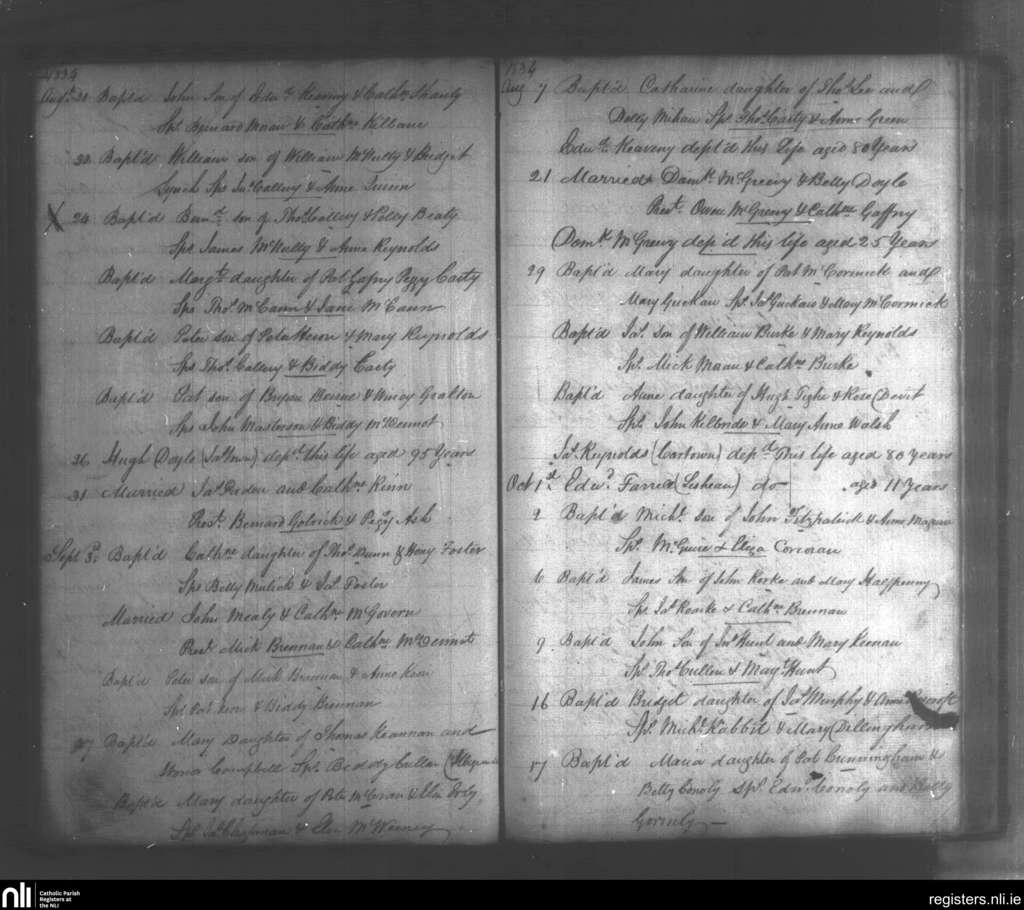 1834
Augt. 20 Bapt'd John Son of Edwd. Keaveny & Cathne Shanly
Sps. Bernard Moran & Cathne Kilbane
22 Bapt'd William son of William McNully & Bridget
Lynch Sps Jas. Callery & Anne Quinn
X 24 Bapt'd Bernd. son of Thos. Callery & Polly Beaty
Sps James McNally & Anne Reynolds
Bapt'd Margt. daughter of Pat Gafny Peggy Carty
Sps Thos. McCann & Jane McCann
Bapt'd Peter son of Peter Heron & Mary Reynolds
Sps Thos. Callery & Biddy Carty
Bapt'd Pat son of Bryan Beirne & Winey Gralton
Sps John Masterson & Biddy McDermot
Hugh Doyle depd. this life aged 95 Years
31 Married Jas. and Cathne Kinn
Prest. Bernard Golrick & Peggy Ash
Sept. 3d. Bapt'd Cathne daughter of Thos. Dunn & Hony Foster
Sps Betty Mulick & Jas. Foster
Married John Mealy & Cathne McGovern
Prest. Mick Brennan & Cathne McDermot
Bapt'd Peter son of Mick Brennan & Anne Kean
Sps Pat & Biddy Brennan
Bapt'd Mary Daughter of Thomas Keannan and
Honor Campbell Sps. Biddy Cullen
Bapt'd Mary daughter of Peter McCran & Ellen
Sps Jas. Clapman & Elen McWeeney
1834
Aug 7 Bapt'd Catharine daughter of Thos. Lee and
Betty Mihan Sps Thos. Carty & Anne Green
Edwd. Keaveny dept'd this Life aged 80 Years
21 Married Domk. McGreevy & Betty Doyle
Prest. Owen McGreevy & Cathne Gaffny
Domk. McGreevy dep'd this life aged 25 Years
29 Bapt'd Mary daughter of Pat McCormick and
Mary Guckian Sps. Jas. Guckain & Mary McCormick
Bapt'd Jas. son of William Burke & Mary Reynolds
Sps. Mick Moran & Cathne Burke
Bapt'd Anne daughter of Hugh Tighe & Rose Devit
Sps. John Kilbride & Mary Anne Walsh
Jas. Reynolds (Cartown) depd. This life aged 80 Years
Oct 1st. Edwd. Farrell (Lisheau) do — aged 11 Years
2 Bapt'd Michl. son of John Fitzpatrick & Anne
Sps. McGuire & Eliza Corcoran
6 Bapt'd James Son of John Rorke and Mary Halfpenny
Sps Jas. Roarke & Cathne Brennan
9 Bapt'd John Son of Jas. Hunt and Mary Keenan
Sps Thos. Cullen & Mary Hunt
16 Bapt'd Bridget daughter of Jas. Murphy & Anne
Sps. Michl. Rabbit & Mary Dillingham
17 Bapt'd Maria daughter of Pat Cunningham &
Betty Conoly Sps. Edwd. Conoly and
Gormly —
nli
Catholic Parish
Registers at
the NLI
registers.nli.ie